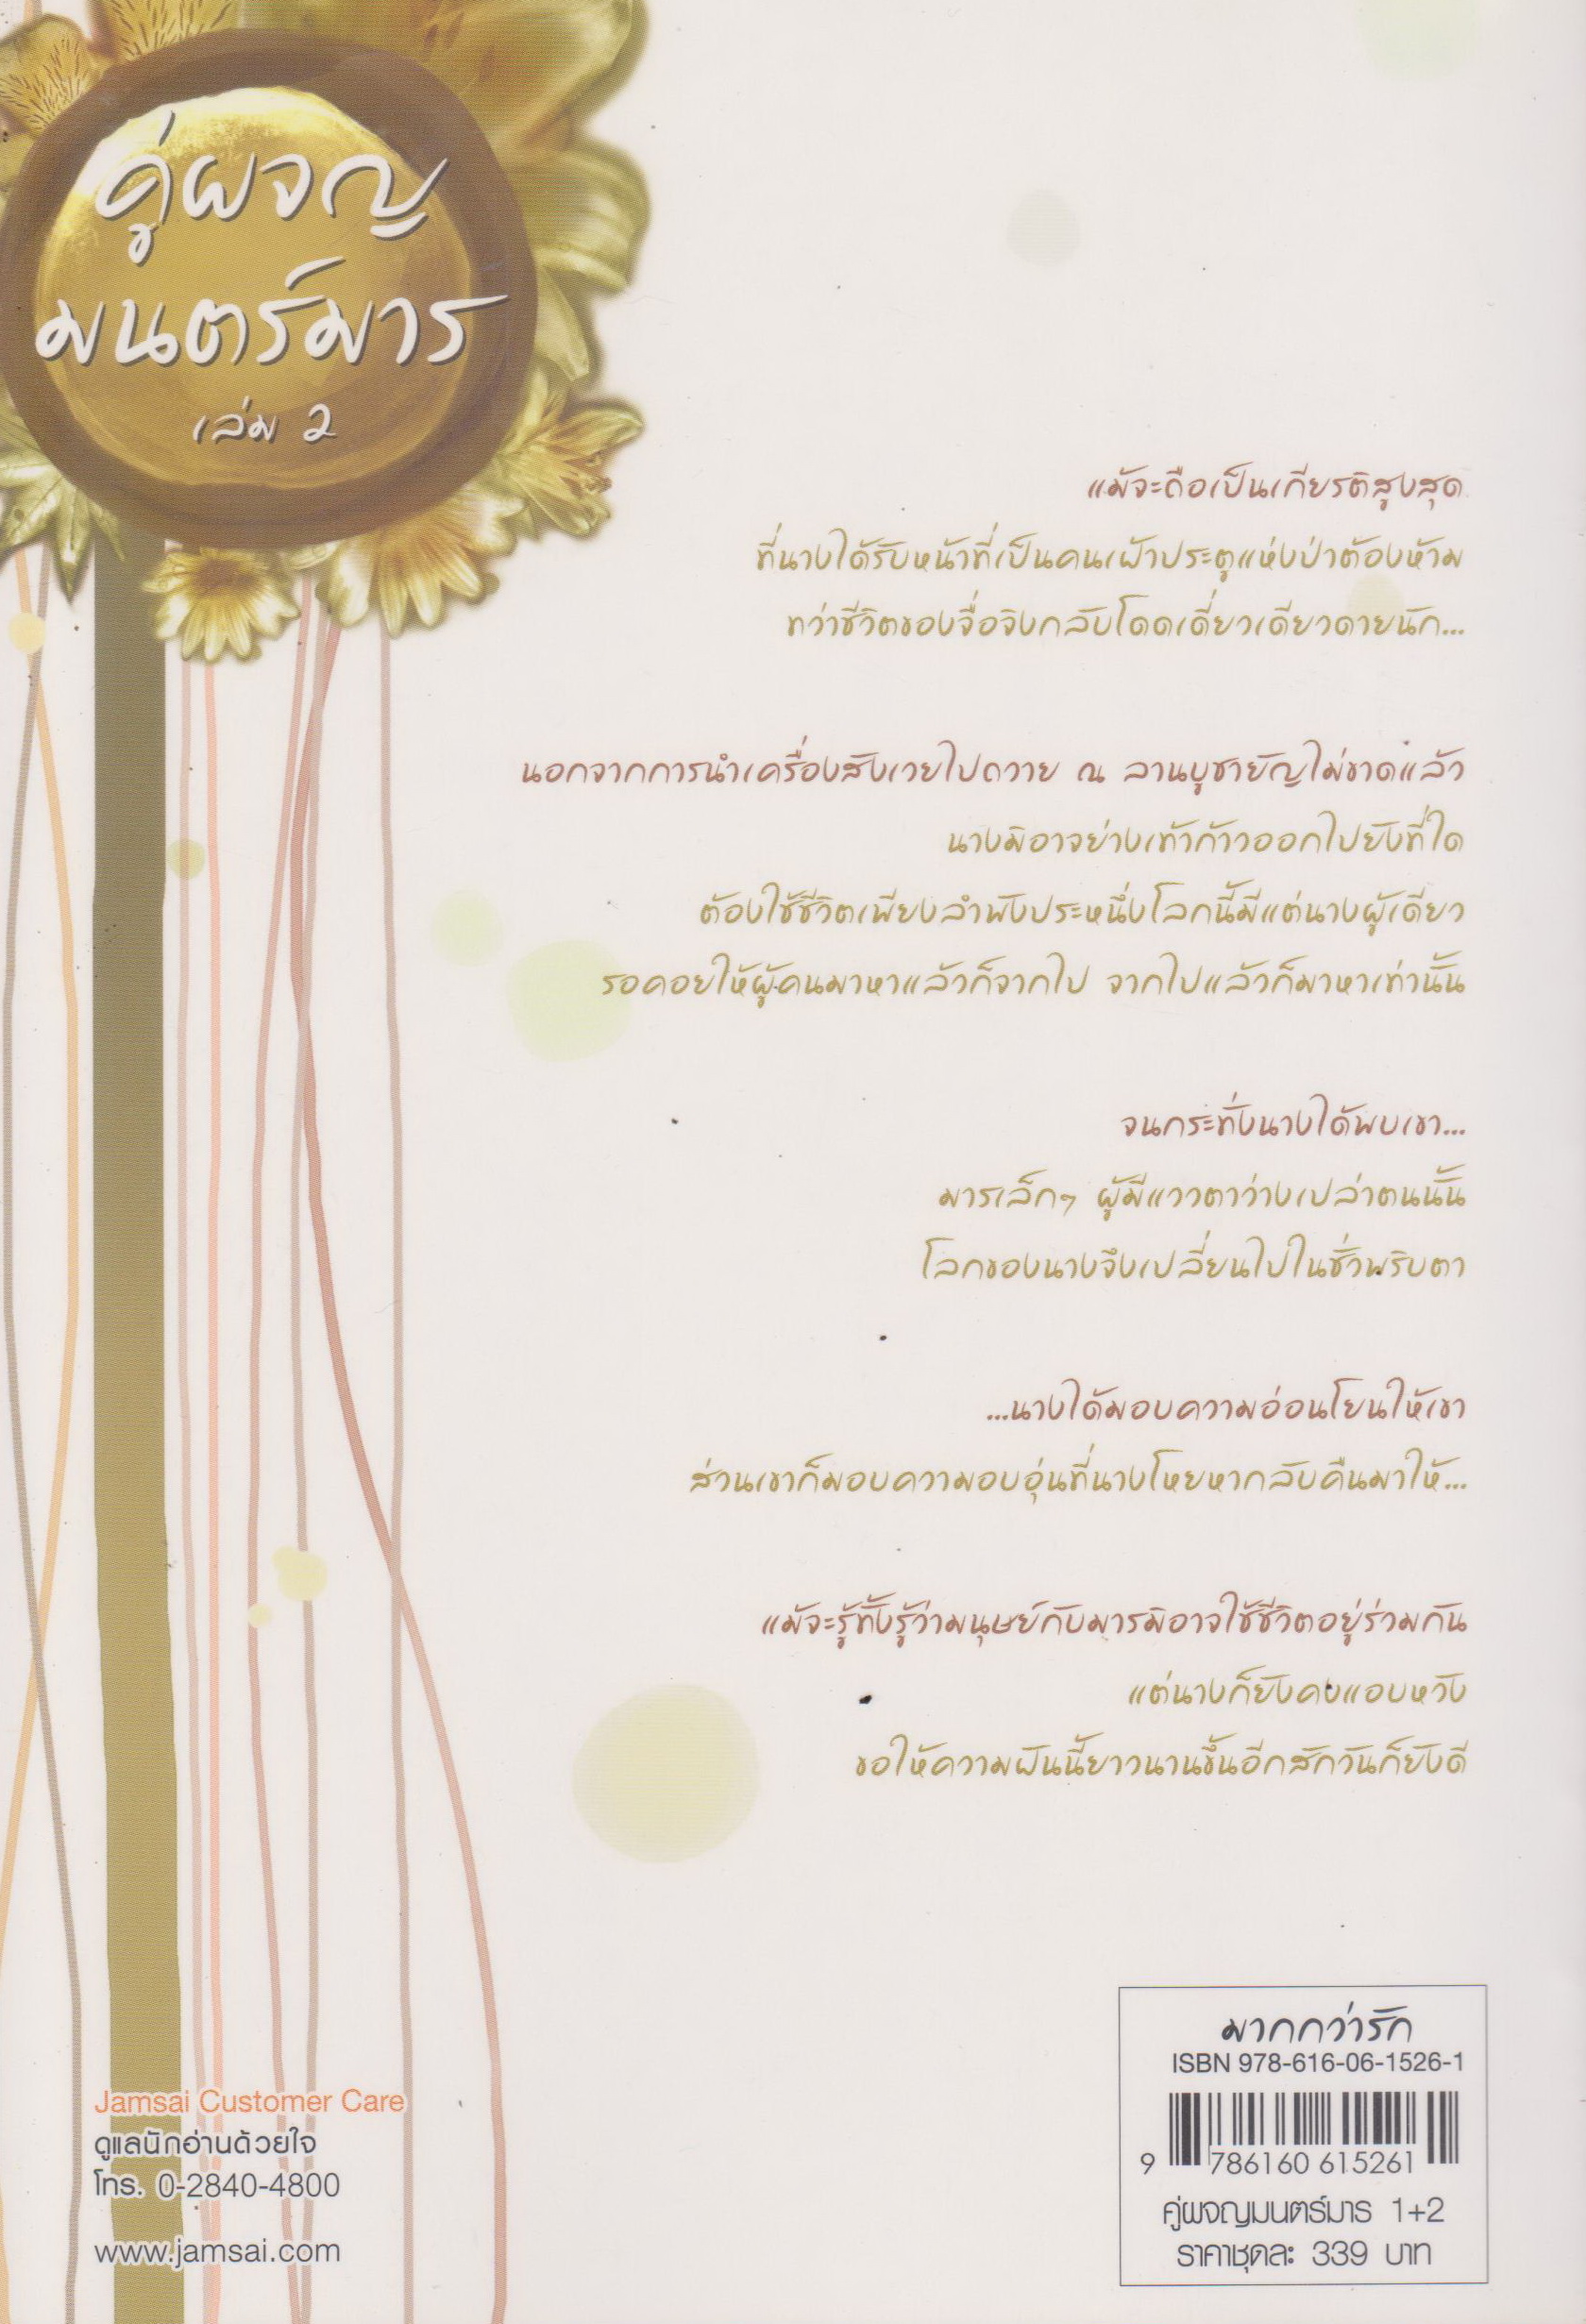 คู่ผจญ
มนตร์มาร
เล่ม ๒
แม้จะถือเป็นเกียรติสูงสุด
ที่นางได้รับหน้าที่เป็นคนเฝ้าประตูแห่งป่าต้องห้าม
ทว่าชีวิตของจื่อจิงกลับโดดเดี่ยวเดียวดายนัก...
นอกจากการนำเครื่องสังเวยไปถวาย ณ ลานบูชายัญไม่ขาดแล้ว
นางมิอาจย่างเท้าก้าวออกไปยังที่ใด
ต้องใช้ชีวิตเพียงลำพังประหนึ่งโลกนี้มีแต่นางผู้เดียว
รอคอยให้ผู้คนมาหาแล้วก็จากไป จากไปแล้วก็มาหาเท่านั้น
จนกระทั่งนางได้พบเขา...
มารเล็กๆ ผู้มีแววตาว่างเปล่าตนนั้น
โลกของนางจึงเปลี่ยนไปในชั่วพริบตา
...นางได้มอบความอ่อนโยนให้เขา
ส่วนเขาก็มอบความอบอุ่นที่นางโหยหากลับคืนมาให้...
แม้จะรู้ทั้งรู้ว่ามนุษย์กับมารมิอาจใช้ชีวิตอยู่ร่วมกัน
แต่นางก็ยังคงแอบหวัง
ขอให้ความฝันนี้ยาวนานขึ้นอีกสักวันก็ยังดี
มากกว่ารัก
ISBN 978-616-06-1526-1
9 786160 615261
คู่ผจญมนตร์มาร 1+2
ราคาชุดละ 339 บาท
Jamsai Customer Care
ดูแลนักอ่านด้วยใจ
โทร. 0-2840-4800
www.jamsai.com